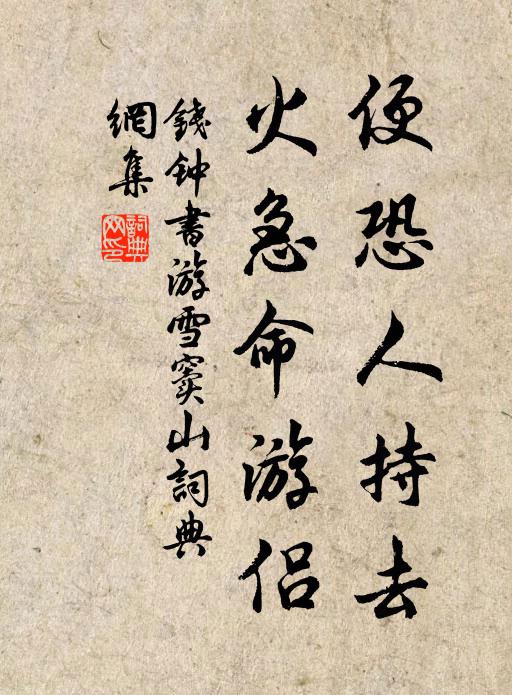 便恐人持去
火急命游侣
錢钟書游雪窦山詞典
網集
詞典网印